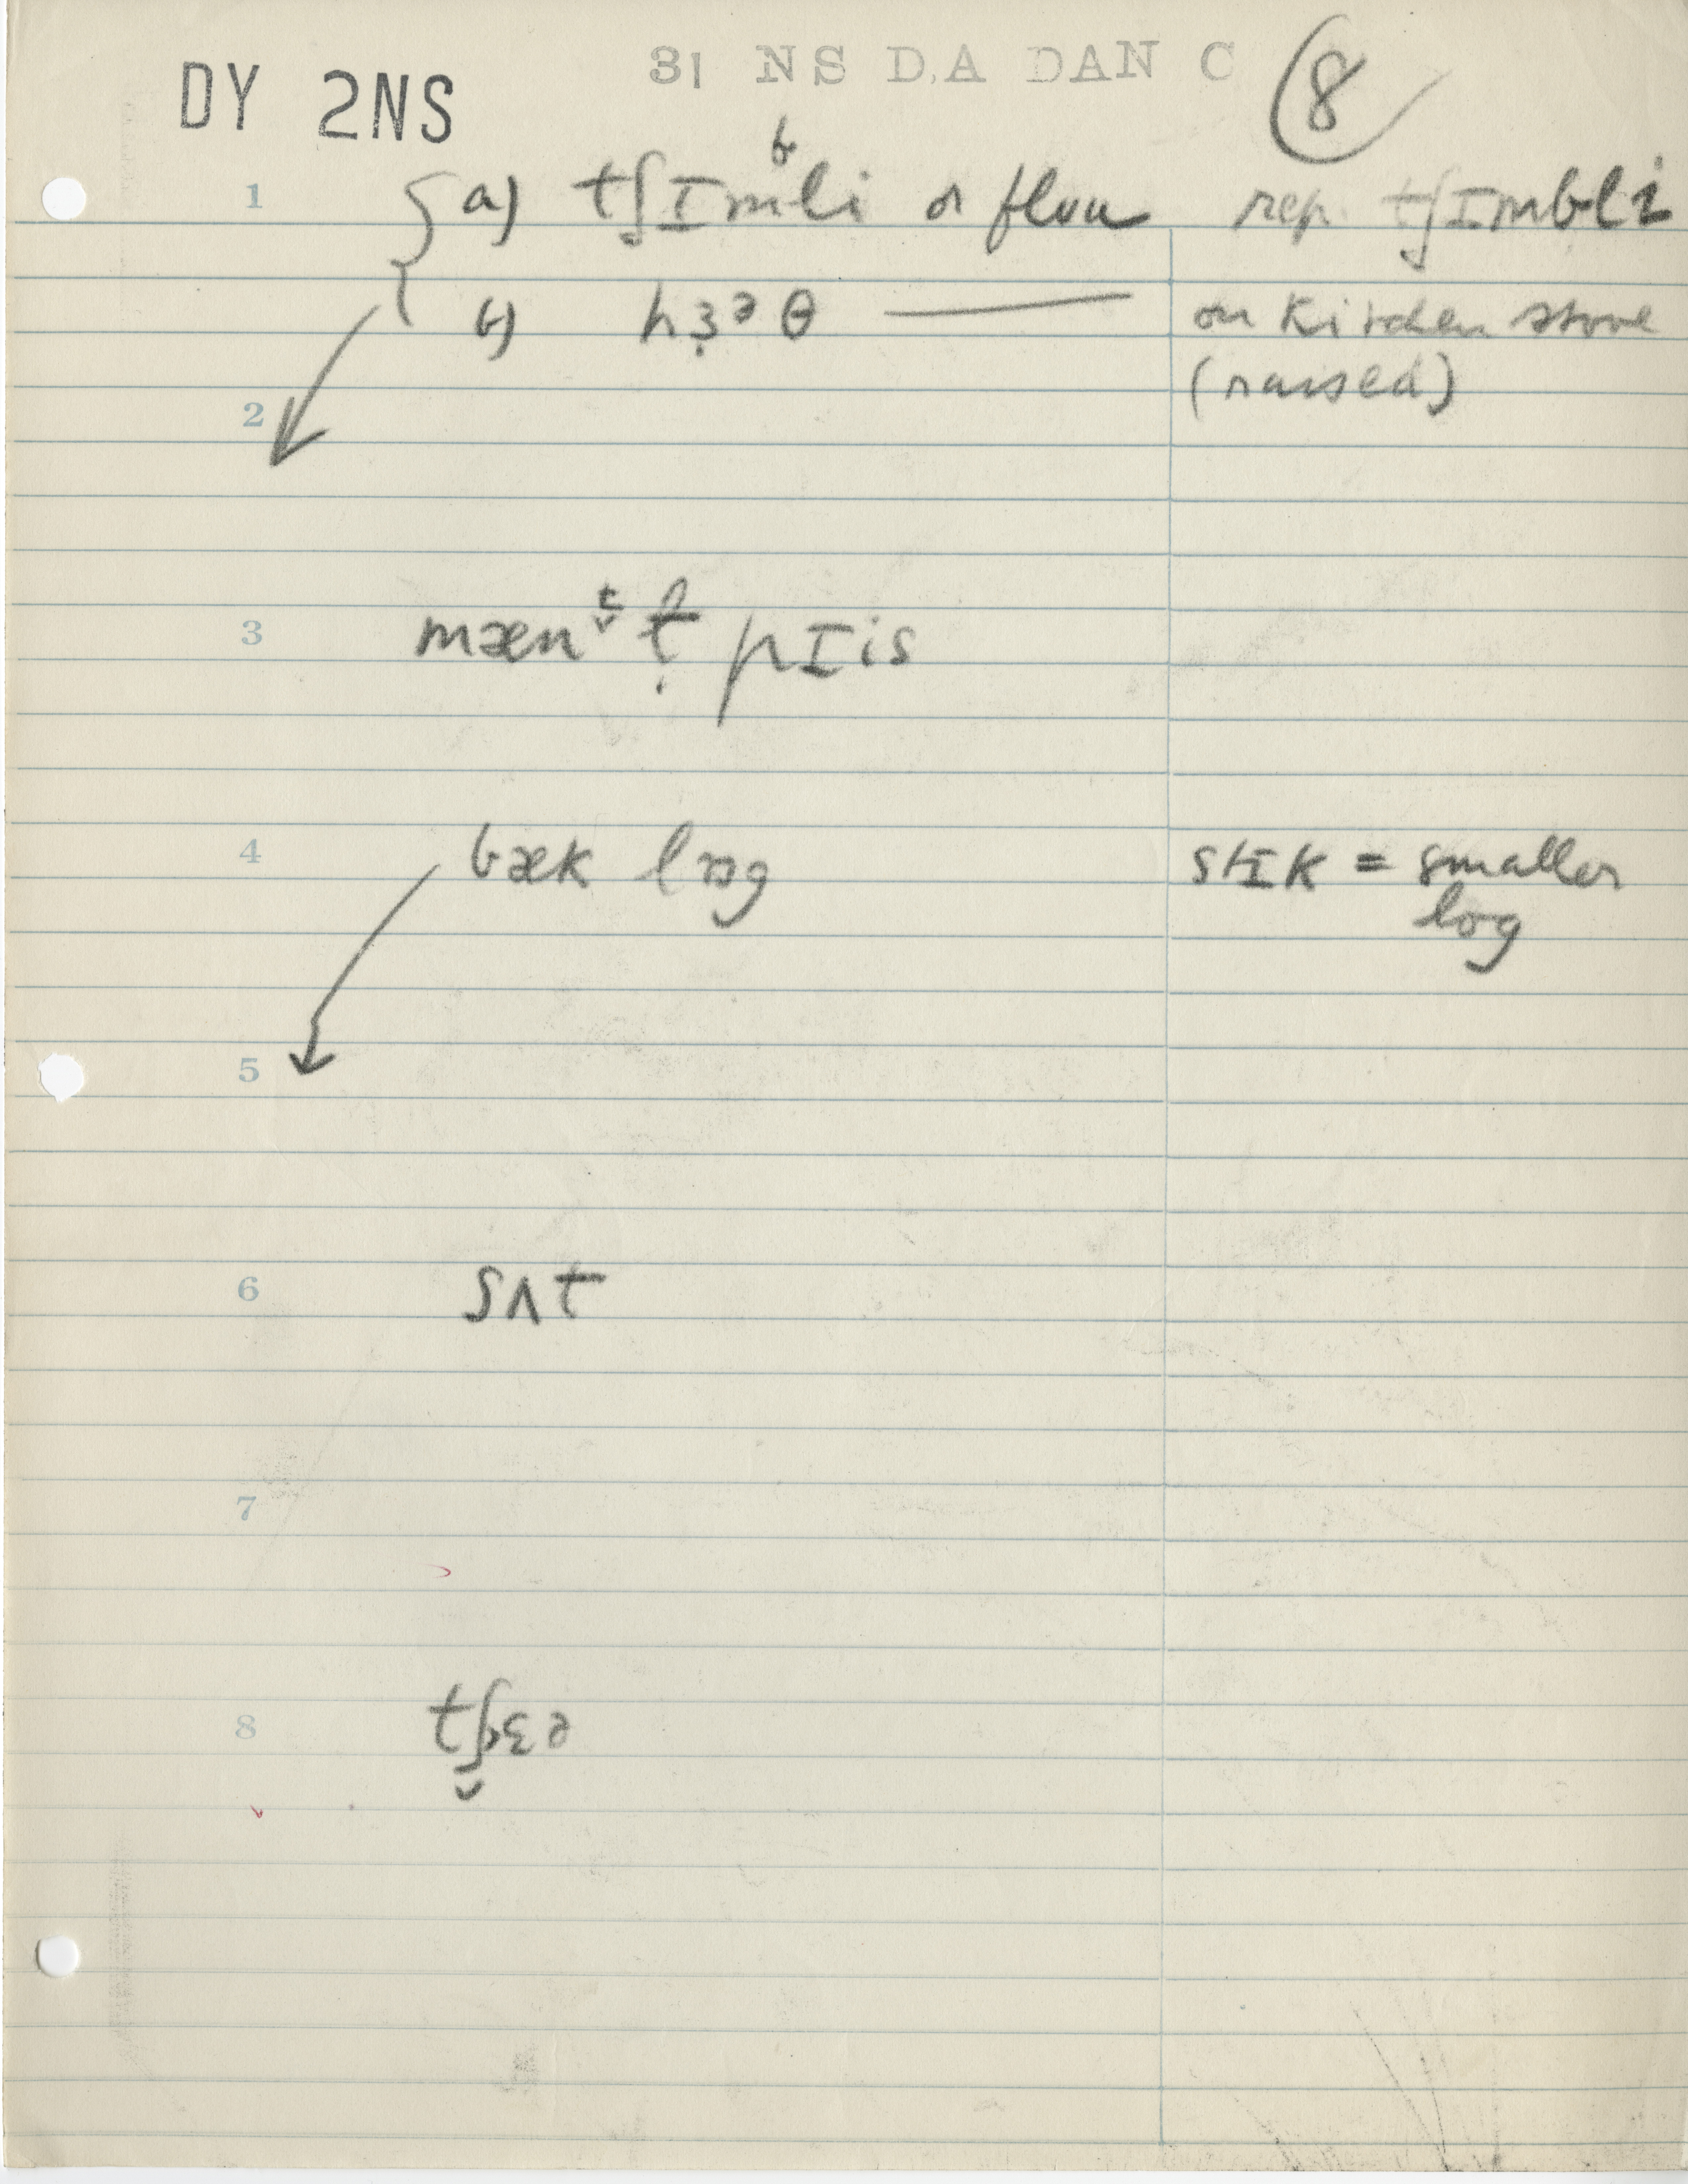 31 NS DA DAN C
DY 2NS
8
1 a) tʃɪmᵇli or flua rep. tʃɪmbli
b) hɜ̣ᵊθ — on kitchen stove
(raised)
2
3 mæn t̬ ṭ pɪis
4 bæk lɒg stɪk = smaller
log
5
6 sʌt
7
8 tʃɛə